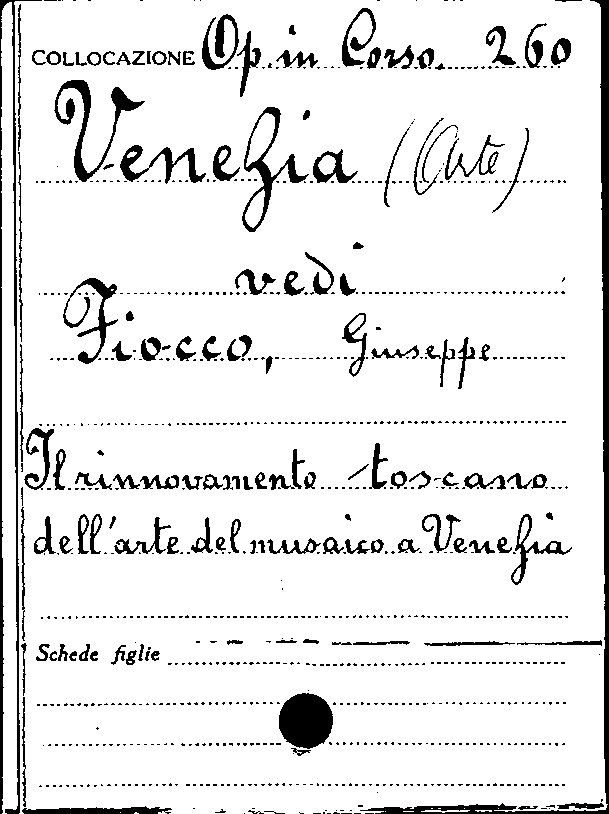 COLLOCAZIONE Op. in Corso. 260
Venezia (Arte)
vedi
Fiocco, Giuseppe
Il rinnovamento toscano
dell'arte del musaico a Venezia
Schede figlie